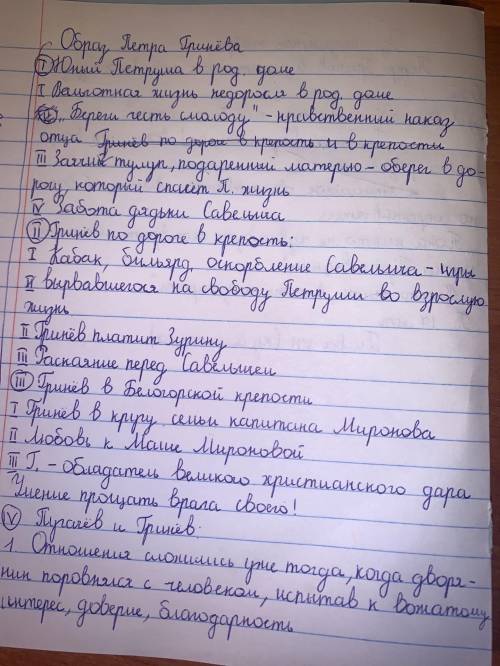 Образ Петра Гринёва
I Юный Петруша в род. доме
I Вольготная жизнь недоросля в род. доме
II „Береги честь смолоду" - нравственный наказ
отца Гринёв по дороге в крепость и в крепости
III Заячий тулуп, подаренний матерью - оберег в до-
рогу, который спасёт П. жизнь
IV Забота дядьки Савельича
II Гринёв по дороге в крепость:
I Кабак, бильярд, оскорбление Савельича - игры
II вырвавшегося на свободу Петруши во взрослую
жизнь
II Гринёв платит Зурину
III Раскаяние перед Савельичем
III Гринёв в Белогорской крепости
I Гринёв в кругу семьи капитана Миронова
II Любовь к Маше Мироновой
III Г. - обладатель великого христианского дара
Умение прощать врага своего!
V Пугачёв и Гринёв:
1. Отношения сложились уже тогда, когда дворя-
нин поровнялся с человеком, испытав к вожатому
интерес, доверие, благодарность